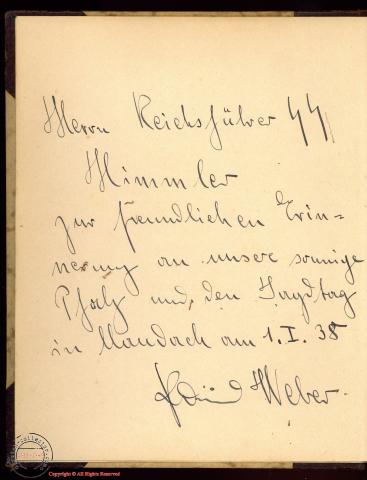 Herrn Reichsführer SS
Himmler
zur freundlichen Erin=
nerung an unsere sonnige
Pfalz und den Jagdtag
in Maudach am 1.I.38
Weber.
Copyright © All Rights Reserved